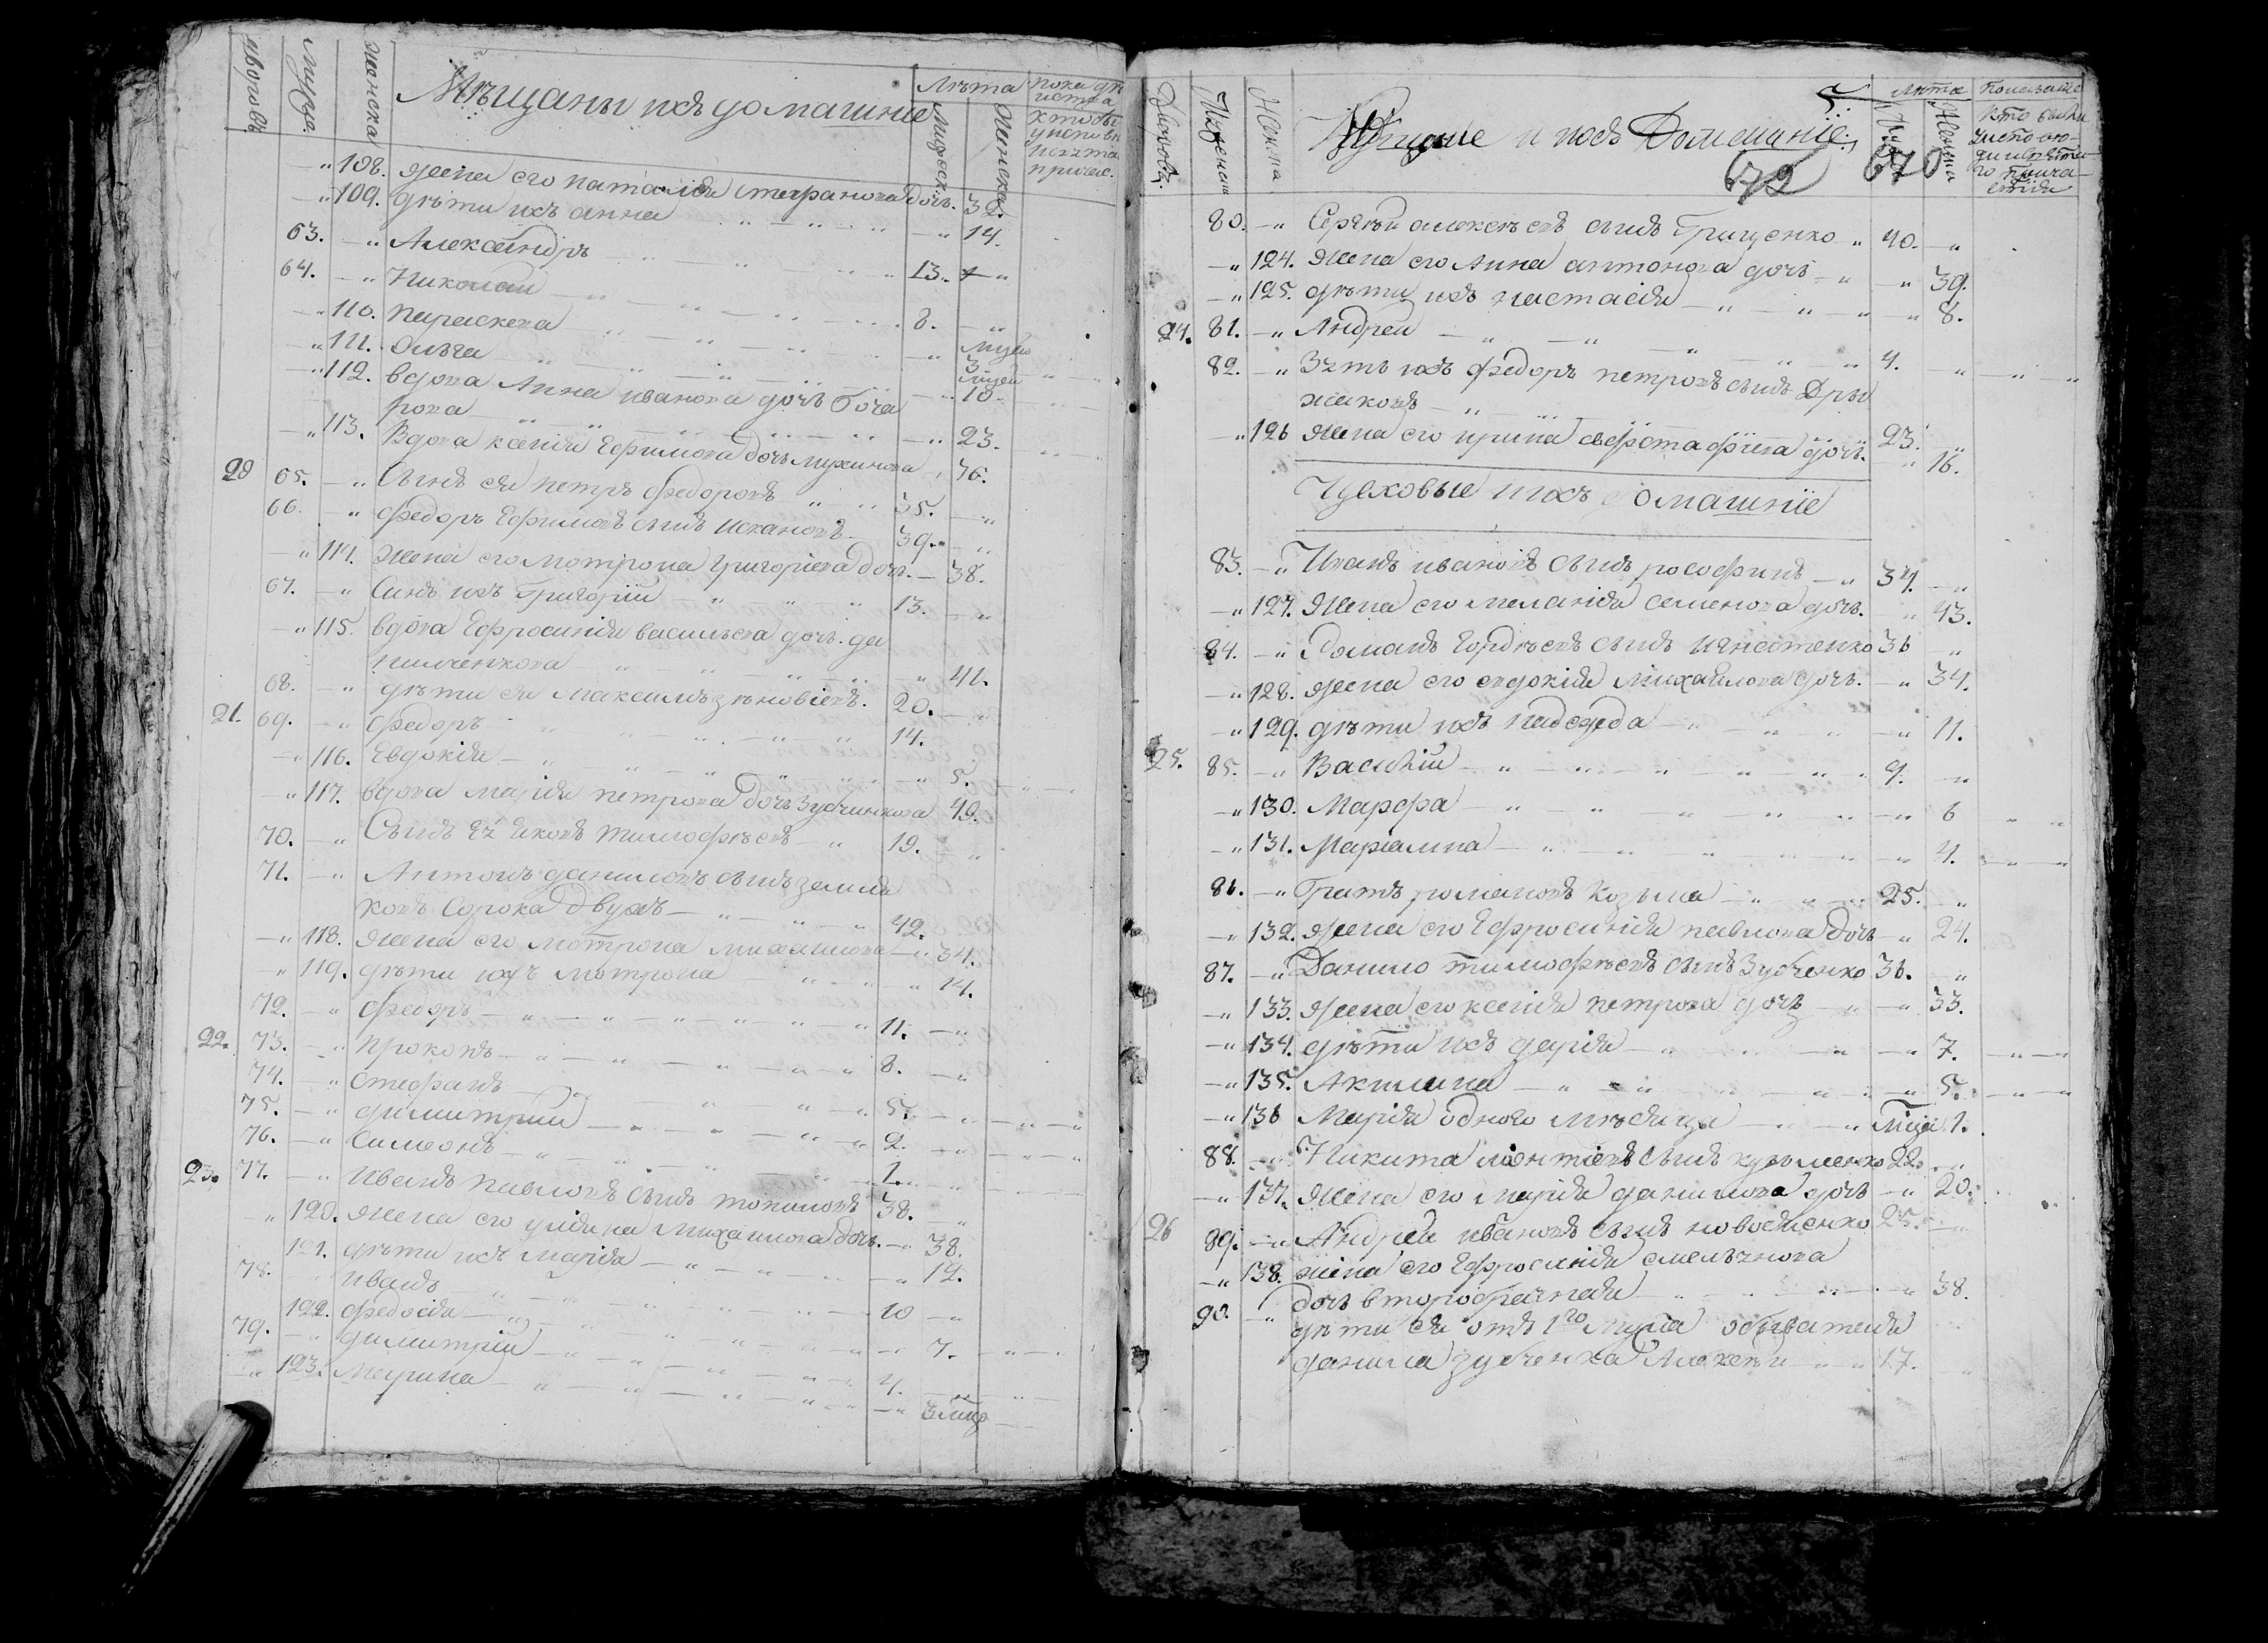 дворовъ
Мужеска
женска
Мѣщаны ихъ домашние
Лѣта
Мужеск.
Женска
пока дѣ
108. жена его наталія стефанова дочь. 32.
109. дѣти ихъ анна 14.
63. Александръ 13.
64. Николай 8.
110. параскева
111. Ольга 3
112. вдова Анна иванова дочь боча
рова 23.
113. Вдова ксенія Ефимова дочь 76.
20 65. Сынъ ея петръ федоровъ 35.
66. федоръ Ефимовъ сынъ 39.
114. жена его мотрона григоріева дочь. 38.
67. Сынъ ихъ григорій 13.
115. вдова Ефросинія васильева дочь. да
нильченкова 41.
68. дѣти ея максимъ зѣновіевъ. 20.
21. 69. федоръ 14.
116. Евдокія 5.
117. вдова марія петрова дочь Зубчинкова 49.
70. Сынъ Ея Яковъ тимофѣевъ 19.
71. Антонъ даниловъ сынъ земля
ковъ Сорока двухъ 42.
118. жена его мотрона михаилова 34.
119. дѣти ихъ мотрона 14.
72. федоръ 11.
22. 73. прокопъ 8.
74. Стефанъ 5.
75. димитрий 2.
76. Симеонъ 1.
23. 77. Иванъ павловъ сынъ топиловъ 38.
120. жена его уліяна михаилова дочь. 38.
121. дѣти ихъ марія 12.
78. иванъ 10
122. федосія 7.
79. димитрій 4.
123. Марина 3 мцо
Дворовъ.
Мужеска
Женска
и ихъ Домашніе.
672
670
Лѣта
Показаніе
80. Сергѣй алексѣевъ сынъ Грищенко 40.
124. жена его Анна антонова дочь 39.
125. дѣти ихъ настасія 8.
24. 81. Андрей 4.
82. Зять ихъ федоръ петровъ сынъ Дры
жаковъ 23.
126 жена его ирина евфстафіева дочь. 16.
Цеховые и ихъ домашніе
83. Иванъ ивановъ сынъ 34.
127. жена его меланія семенова дочь. 43.
84. Романъ Гордѣевъ сынъ Игнатенко 36
128. жена его евдокія михайлова дочь. 34.
129. дѣти ихъ надежда 11.
25. 85. Василій 9.
130. Марфа 6
131. Маріанна 4.
86. братъ романовъ козьма 25.
132. жена его Ефросинія павлова дочь 24.
87. Данило тимофѣевъ сынъ Зубченко 36.
133. жена его ксенія петрова дочь 33.
134. дѣти ихъ дарія 7.
135. Акилина 5.
136 Марія одного мѣсяца мцъ 1.
88. Никита леонтіевъ сынъ кузьменко 22.
137. жена его марія данилова дочь 20.
26 89. Андрей ивановъ сынъ 25.
138. жена его Ефросинія
дочь второбрачная 38.
90. дѣти ея отъ 1го мужа обывателя
данила зубченка Алексѣй 17.